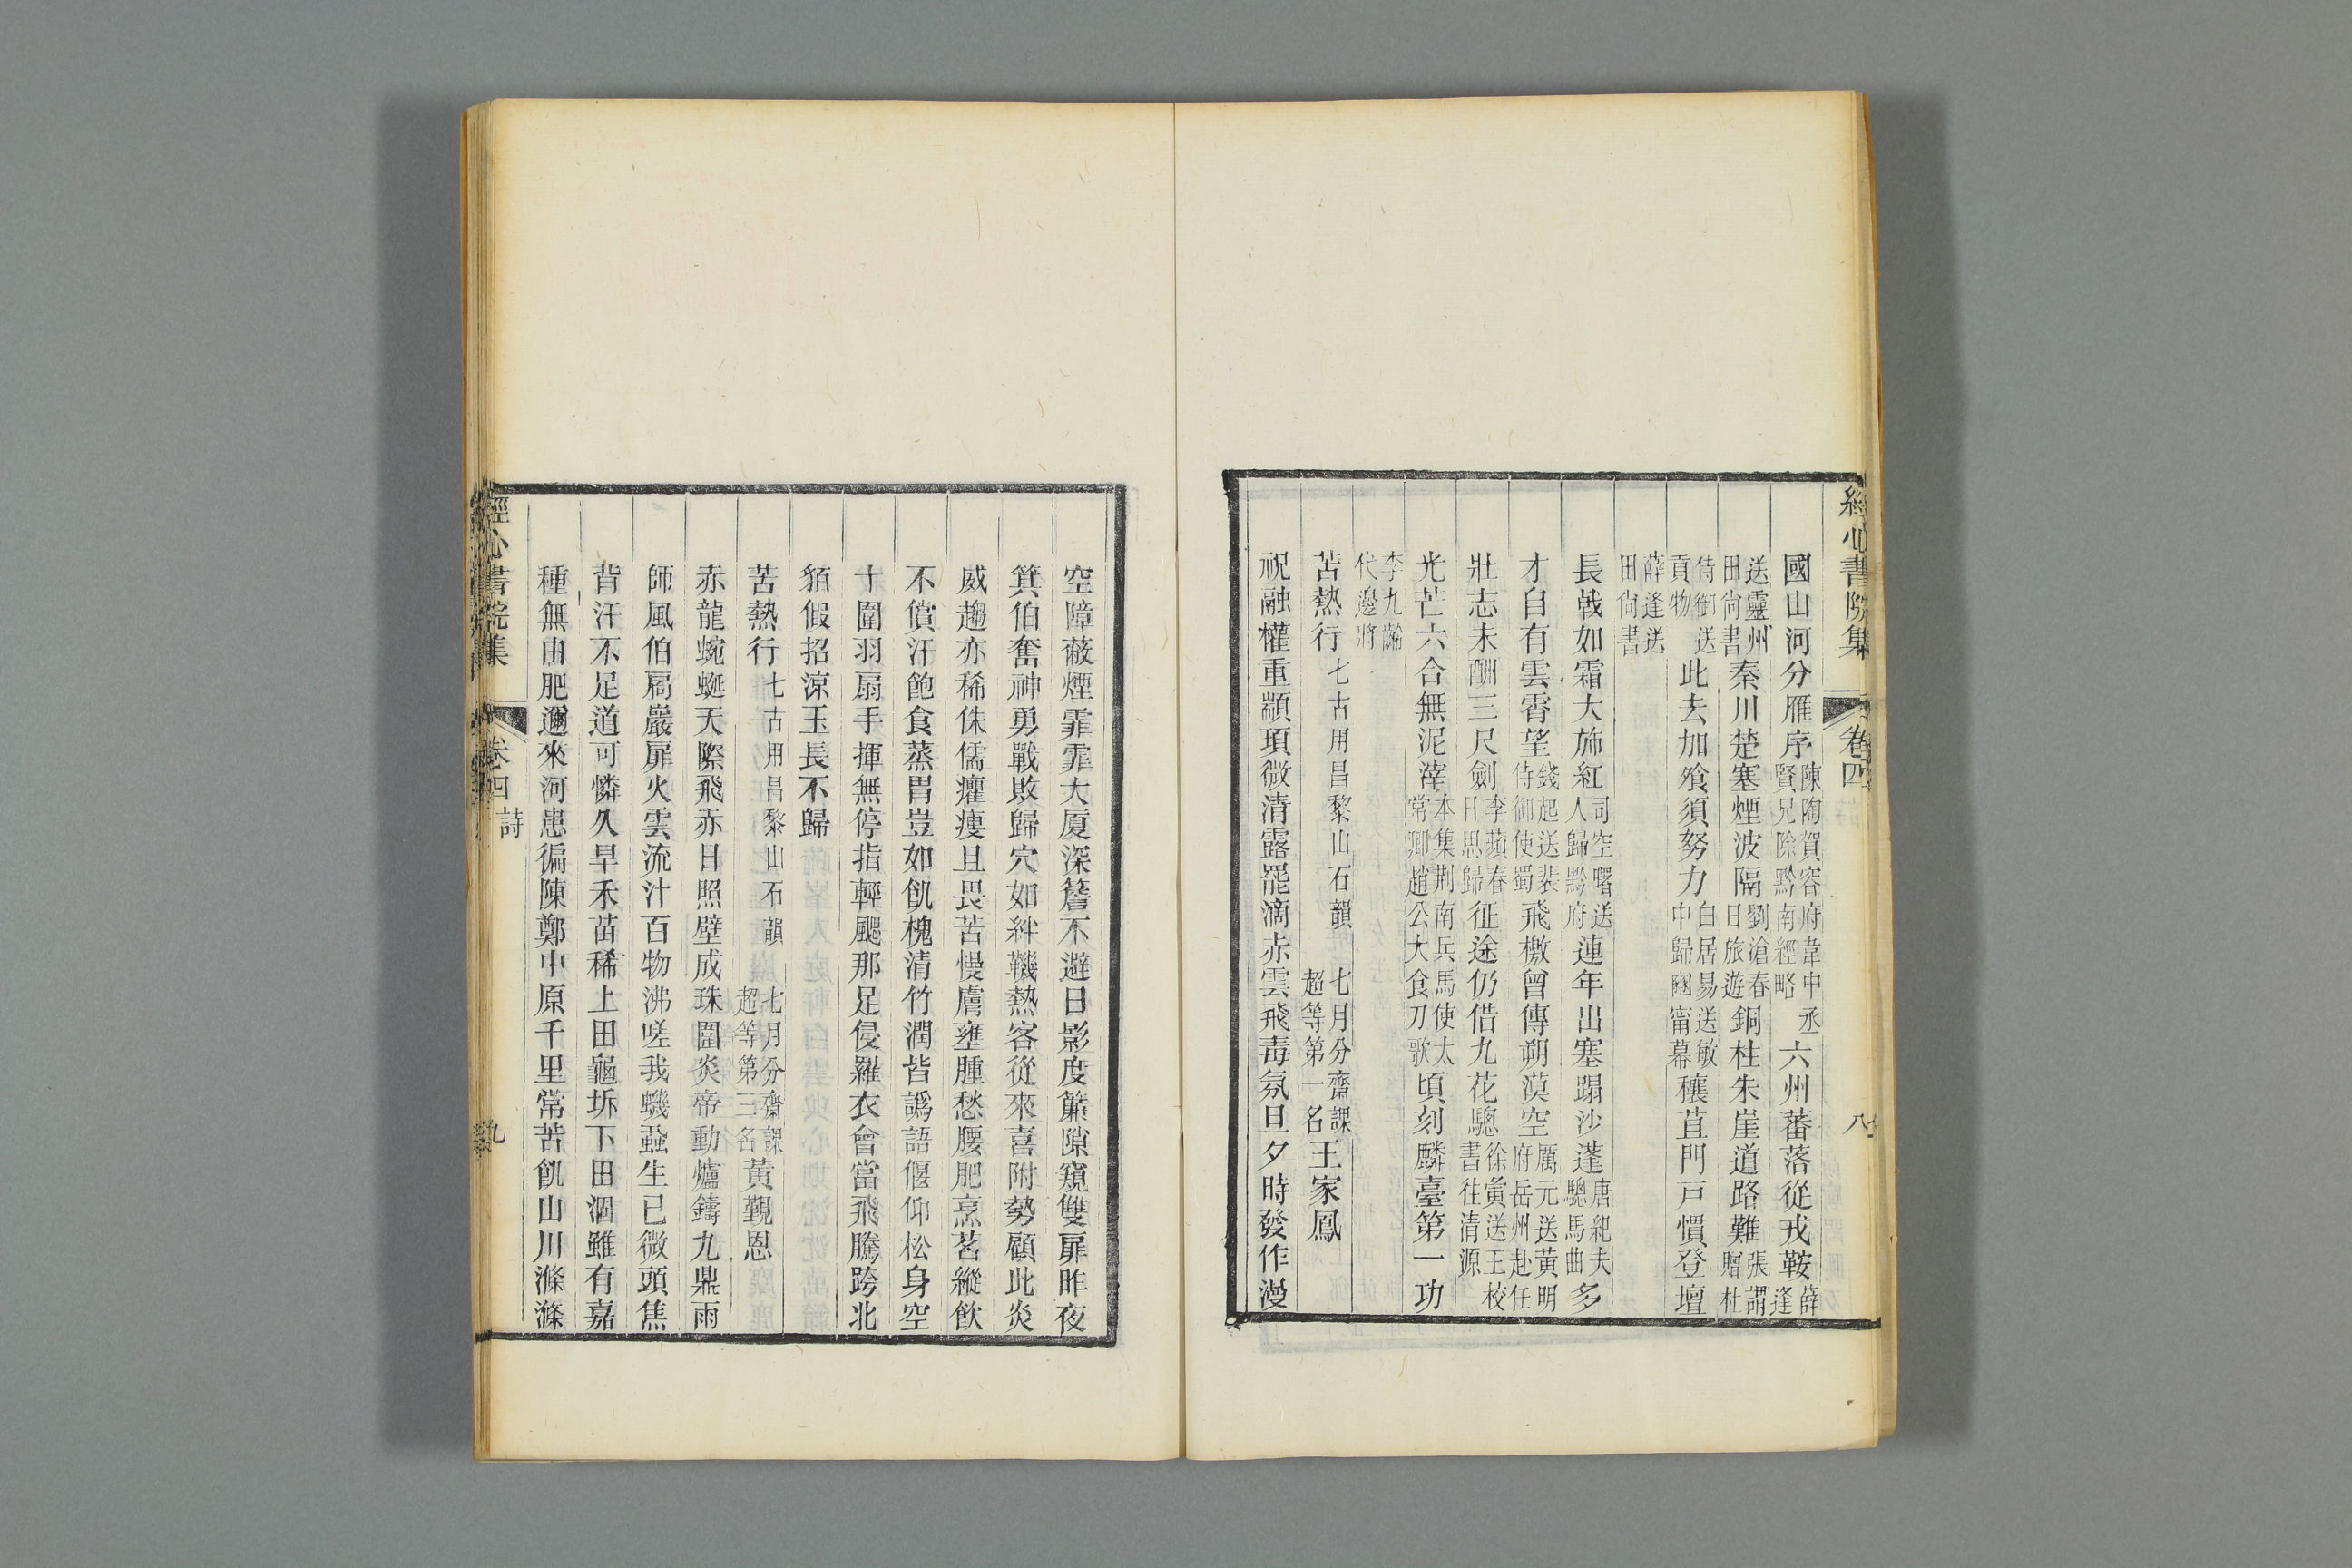 經心書院集 卷四 八
國山河分雁序陳陶賀容府韋中丞賢兄除黔南經略六州蕃落從戎鞍薛逢
送靈州田尚書秦川楚塞煙波隔劉滄春日旅遊銅柱朱崖道路難張謂贈杜
侍御送貢物此去加飱須努力白居易送敏中歸豳甯幕穰苴門戸慣登壇
薛逢送田尚書
長戟如霜大斾紅司空曙送人歸黔府連年出塞蹋沙蓬唐紀夫驄馬曲多
才自有雲霄望錢起送裴侍御使蜀飛檄曾傳朔漠空厲元送黃明府岳州赴任
壯志未酬三尺劍李蘋春日思歸征途仍借九花驄徐夤送王校書往清源
光芒六合無泥滓本集荆南兵馬使太常卿趙公大食刀歌頃刻麟臺第一功
李九齡代邊將
苦熱行七古用昌黎山石韻 七月分齋課超等第一名王家鳳
祝融權重顓頊微清露罷滴赤雲飛毒氛旦夕時發作漫
空障蔽煙霏霏大厦深簷不避日影度簾隙窺雙扉昨夜
箕伯奮神勇戰敗歸穴如絆鞿熱客從來喜附勢顧此炎
威趨亦稀侏儒癯瘦且畏苦慢膚壅腫愁腰肥烹茗縱飲
不償汗飽食蒸胃豈如飢槐清竹潤皆譌語偃仰松身空
十圍羽扇手揮無停指輕颸那足侵羅衣會當飛騰跨北
貊假招涼玉長不歸
苦熱行七古用昌黎山石韻 七月分齋課超等第三名黃覲恩
赤龍蜿蜒天際飛赤日照壁成珠圍炎帝動爐鑄九鼎雨
師風伯扃巖扉火雲流汁百物沸嗟我蟣蝨生已微頭焦
背汗不足道可憐久旱禾苗稀上田龜坼下田涸雖有嘉
種無由肥邇來河患徧陳鄭中原千里常苦飢山川滌滌
經心書院集 卷四 詩 九